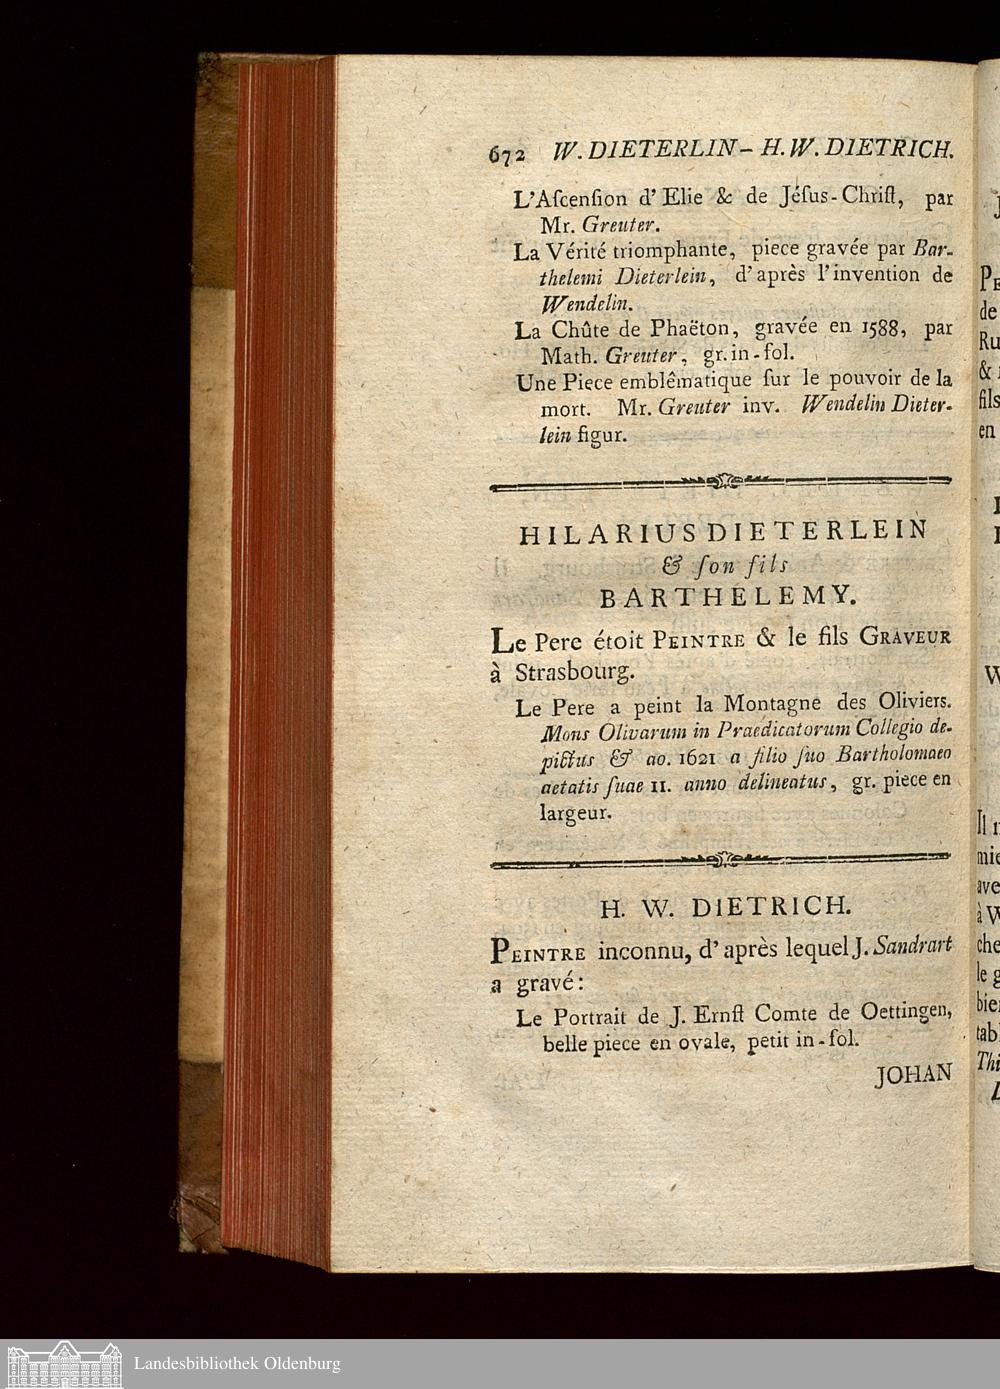 672 W. DIETERLIN – H. W. DIETRICH.
L'Ascension d'Elie & de Jésus-Christ, par
Mr. Greuter.
La Vérité triomphante, piece gravée par Bar-
thelemi Dieterlein, d'après l'invention de
Wendelin.
La Chûte de Phaëton, gravée en 1588, par
Math. Greuter, gr. in-fol.
Une Piece emblêmatique sur le pouvoir de la
mort. Mr. Greuter inv. Wendelin Dieter-
lein figur.
HILARIUS DIETERLEIN
& son fils
BARTHÉLEMY.
Le Pere étoit PEINTRE & le fils GRAVEUR
à Strasbourg.
Le Pere a peint la Montagne des Oliviers.
Mons Olivarum in Praedicatorum Collegio de-
pictus & ao. 1621 a filio suo Bartholomaeo
aetatis suae 11. anno delineatus, gr. piece en
largeur.
H. W. DIETRICH.
PEINTRE inconnu, d'après lequel J. Sandrart
a gravé:
Le Portrait de J. Ernst Comte de Oettingen,
belle piece en ovale, petit in-fol.
JOHAN
Landesbibliothek Oldenburg